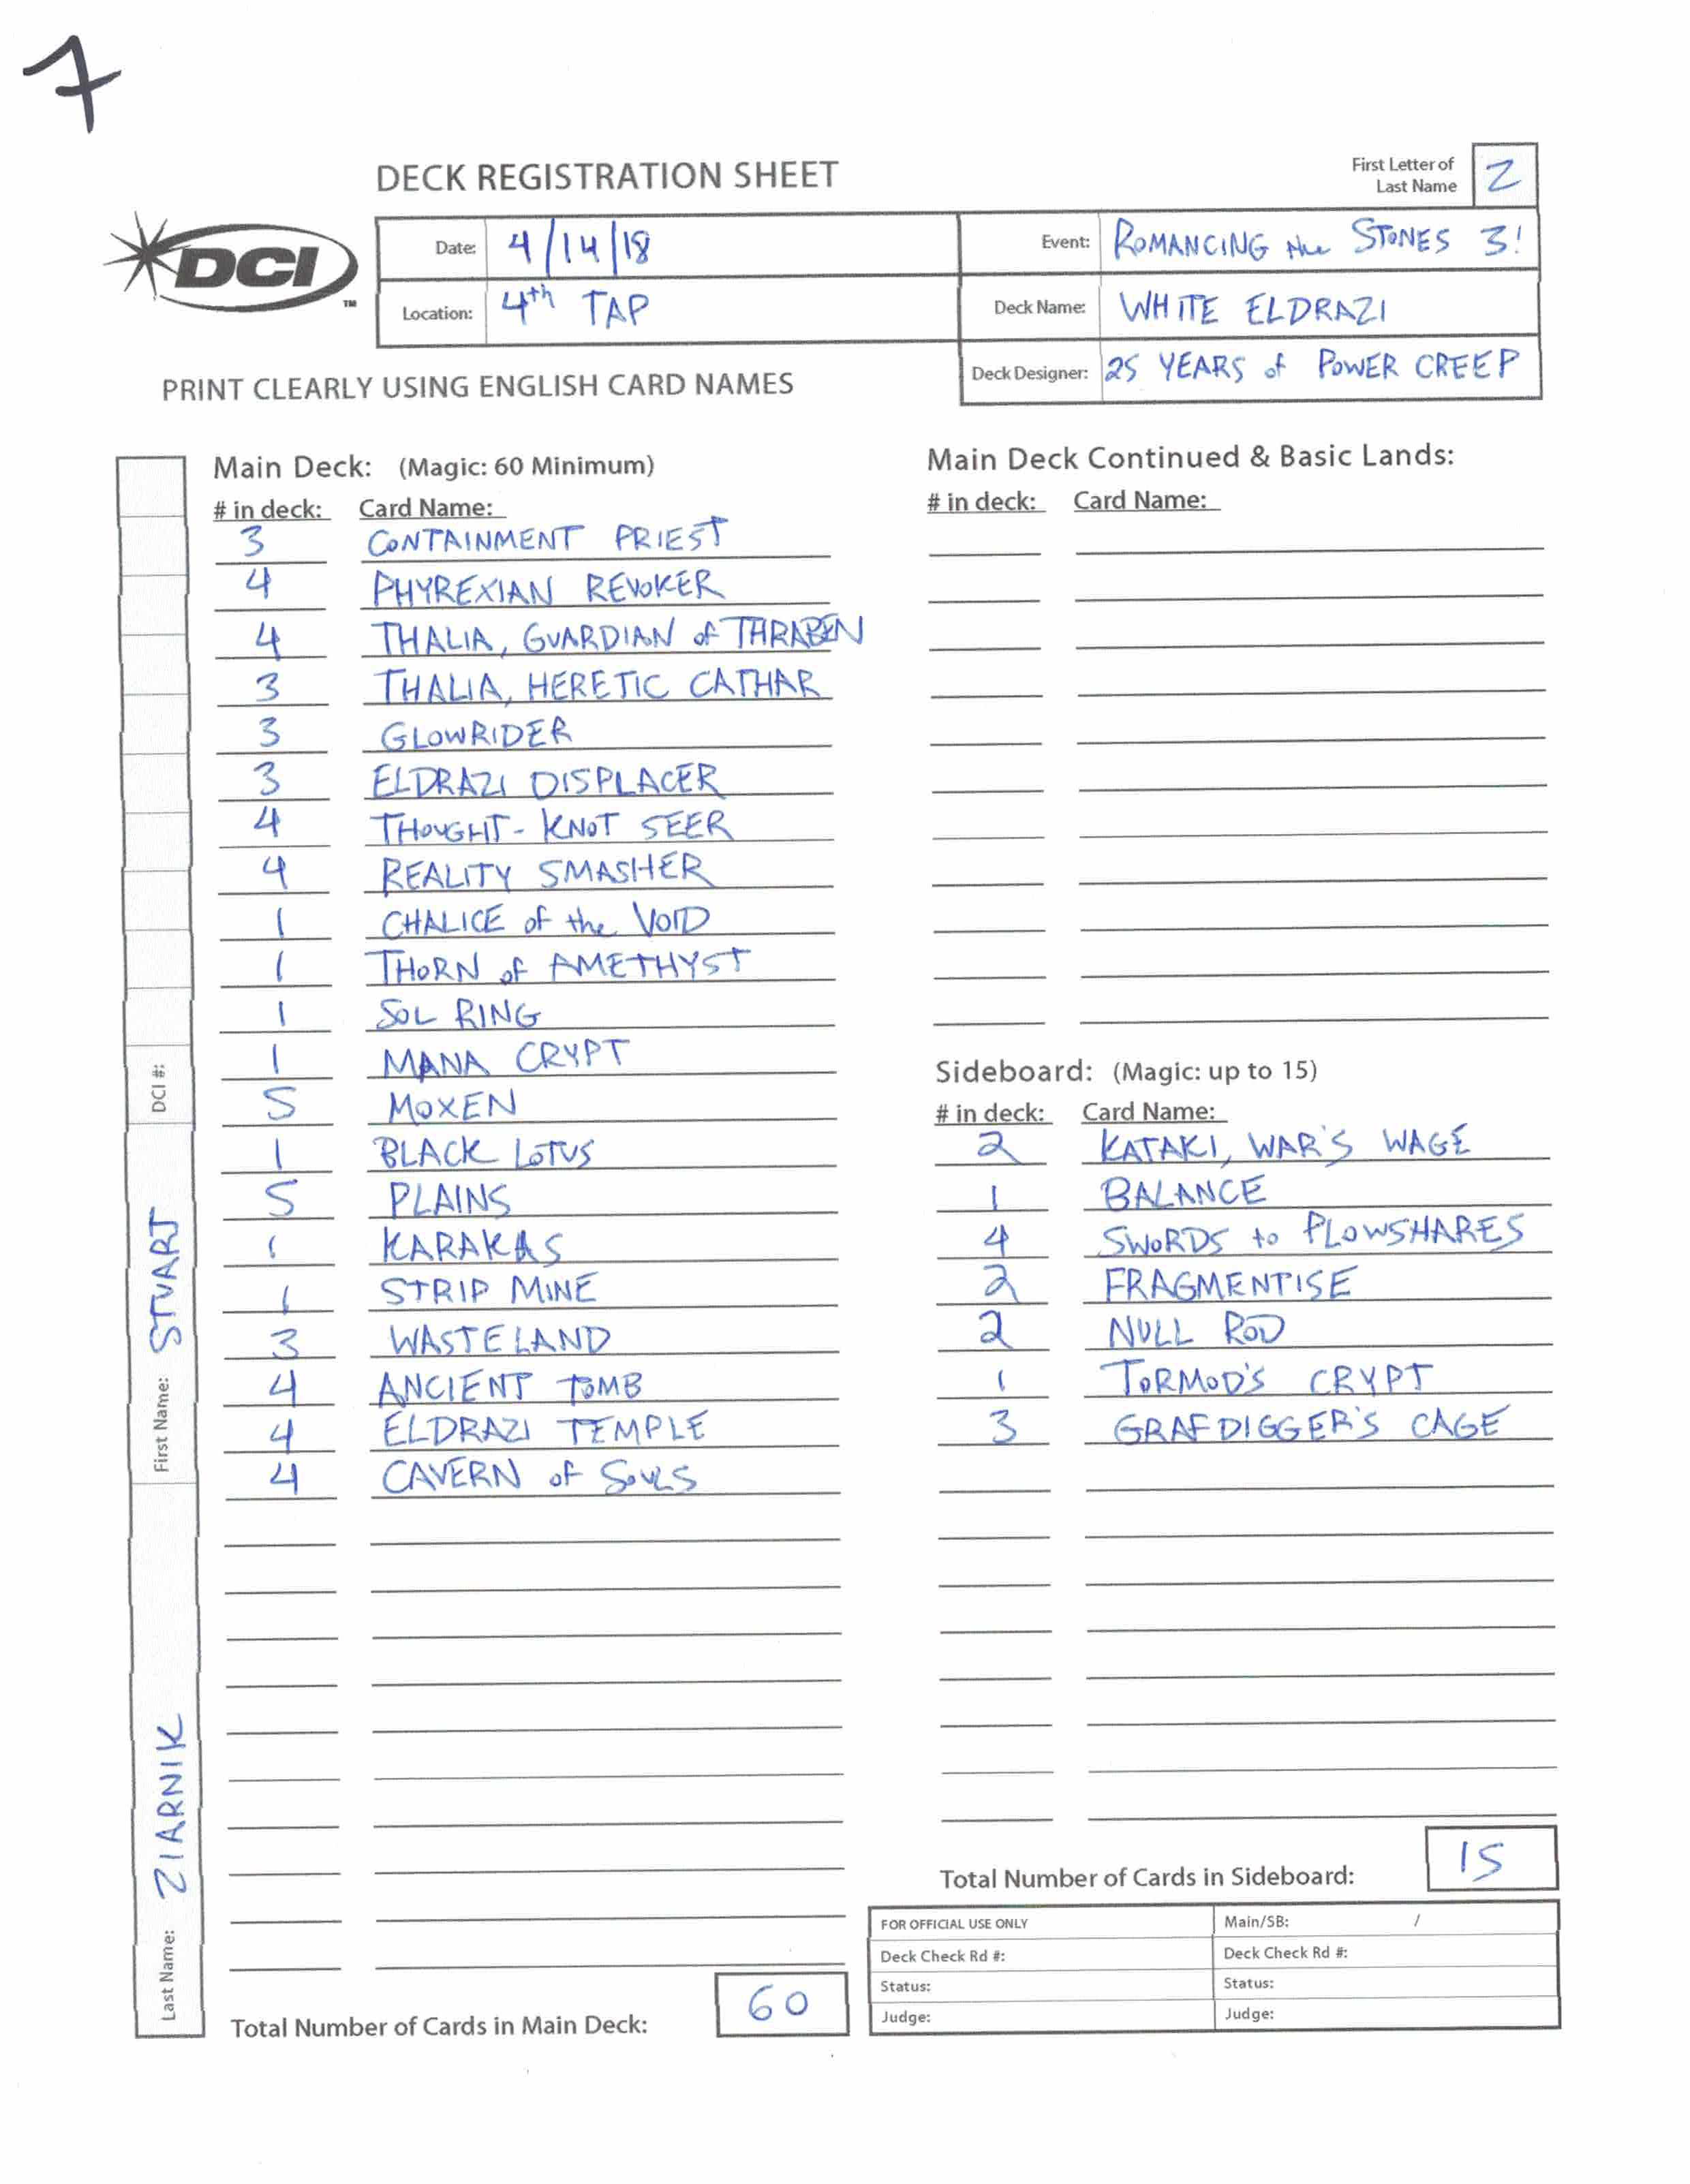 7
DECK REGISTRATION SHEET
First Letter of
Last Name
Z
DCI
TM
Date: 4/14/18
Event: ROMANCING the STONES 3!
Location: 4th TAP
Deck Name: WHITE ELDRAZI
Deck Designer: 25 YEARS of POWER CREEP
PRINT CLEARLY USING ENGLISH CARD NAMES
Main Deck: (Magic: 60 Minimum)
# in deck: Card Name:
3 CONTAINMENT PRIEST
4 PHYREXIAN REVOKER
4 THALIA, GUARDIAN of THRABEN
3 THALIA, HERETIC CATHAR
3 GLOWRIDER
3 ELDRAZI DISPLACER
4 THOUGHT-KNOT SEER
4 REALITY SMASHER
1 CHALICE of the VOID
1 THORN of AMETHYST
1 SOL RING
1 MANA CRYPT
5 MOXEN
1 BLACK LOTUS
5 PLAINS
1 KARAKAS
1 STRIP MINE
3 WASTELAND
4 ANCIENT TOMB
4 ELDRAZI TEMPLE
4 CAVERN of SOULS
Total Number of Cards in Main Deck: 60
Main Deck Continued & Basic Lands:
# in deck: Card Name:
Sideboard: (Magic: up to 15)
# in deck: Card Name:
2 KATAKI, WAR'S WAGE
1 BALANCE
4 SWORDS to PLOWSHARES
2 FRAGMENTISE
2 NULL ROD
1 TORMOD'S CRYPT
3 GRAFDIGGER'S CAGE
Total Number of Cards in Sideboard: 15
FOR OFFICIAL USE ONLY
Main/SB: /
Deck Check Rd #:
Deck Check Rd #:
Status:
Status:
Judge:
Judge:
DCI #:
First Name: STUART
Last Name: ZIARNIK